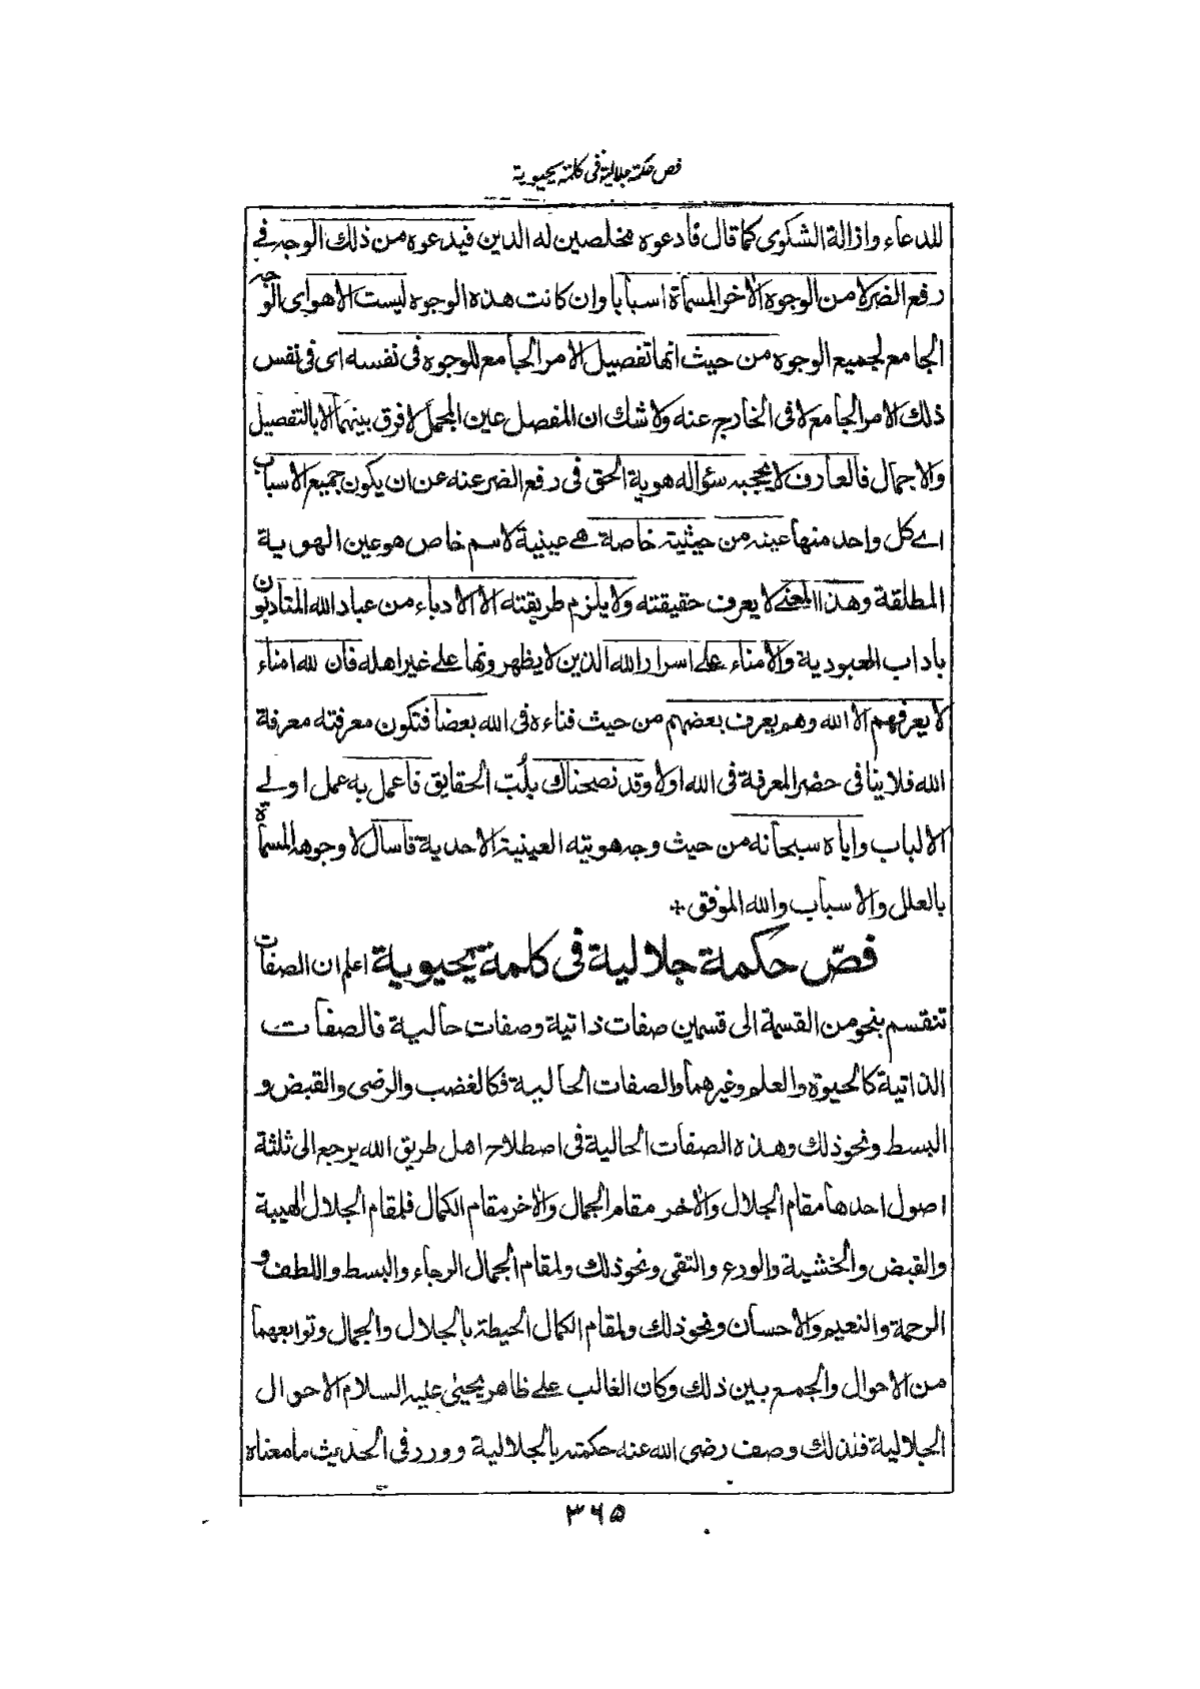 فص حكمة جلالية في كلمة يحيوية
للدعاء وازالة الشكوى كما قال فادعوه مخلصين له الدين فيدعوه من ذلك الوجه في
رفع الضر لا من الوجوه الاخر المسماة اسبابا وان كانت هذه الوجوه ليست الا هو اى الوجه
الجامع لجميع الوجوه من حيث انها تفصيل الامر الجامع للوجوه فى نفسه اى فى نفس
ذلك الامر الجامع لا فى الخارج عنه ولا شك ان المفصل عين المجمل لا فرق بينهما الا بالتفصيل
والاجمال فالعارف لا يحجبه سؤاله هوية الحق فى رفع الضر عنه عن ان يكون جميع الاسباب
اے كل واحد منها عينه من حيثية خاصة هے عينية لاسم خاص هو عين الهوية
المطلقة وهذا المعنے لا يعرف حقيقته ولا يلزم طريقته الا الادباء من عباد الله المتادبون
باداب العبودية والامناء علے اسرار الله الذين لا يظهرونها علے غير اهله فان لله امناء
لا يعرفهم الا الله وهم يعرف بعضهم من حيث فناءه فى الله بعضا فتكون معرفته معرفة
الله فلا ينافى حضر المعرفة فى الله اولا وقد نصحناك بلُبّ الحقايق فاعمل به عمل اولے
الالباب واياه سبحانه من حيث وجه هويته العينية الاحدية فاسال لا وجوهه المسماة
بالعلل والاسباب والله الموفق +
فصّ حكمة جلالية فى كلمة يحيوية اعلم ان الصفات
تنقسم بنحو من القسمة الى قسمين صفات ذاتية وصفات حالية فالصفات
الذاتية كالحيوة والعلم وغيرهما والصفات الحالية فكالغضب والرضى والقبض و
البسط ونحو ذلك وهذه الصفات الحالية فى اصطلاح اهل طريق الله يرجع الى ثلثة
اصول احدها مقام الجلال والاخر مقام الجمال والاخر مقام الكمال فلمقام الجلال الهيبة
والقبض والخشية والورع والتقى ونحو ذلك ولمقام الجمال الرجاء والبسط واللطف و
الرحمة والنعيم والاحسان ونحو ذلك ولمقام الكمال الحيطة بالجلال والجمال وتوابعهما
من الاحوال والجمع بين ذلك وكان الغالب علے ظاهر يحيى عليه السلام الاحوال
الجلالية فلذلك وصف رضى الله عنه حكمته بالجلالية وورد فى الحديث ما معناه
٣٦٥